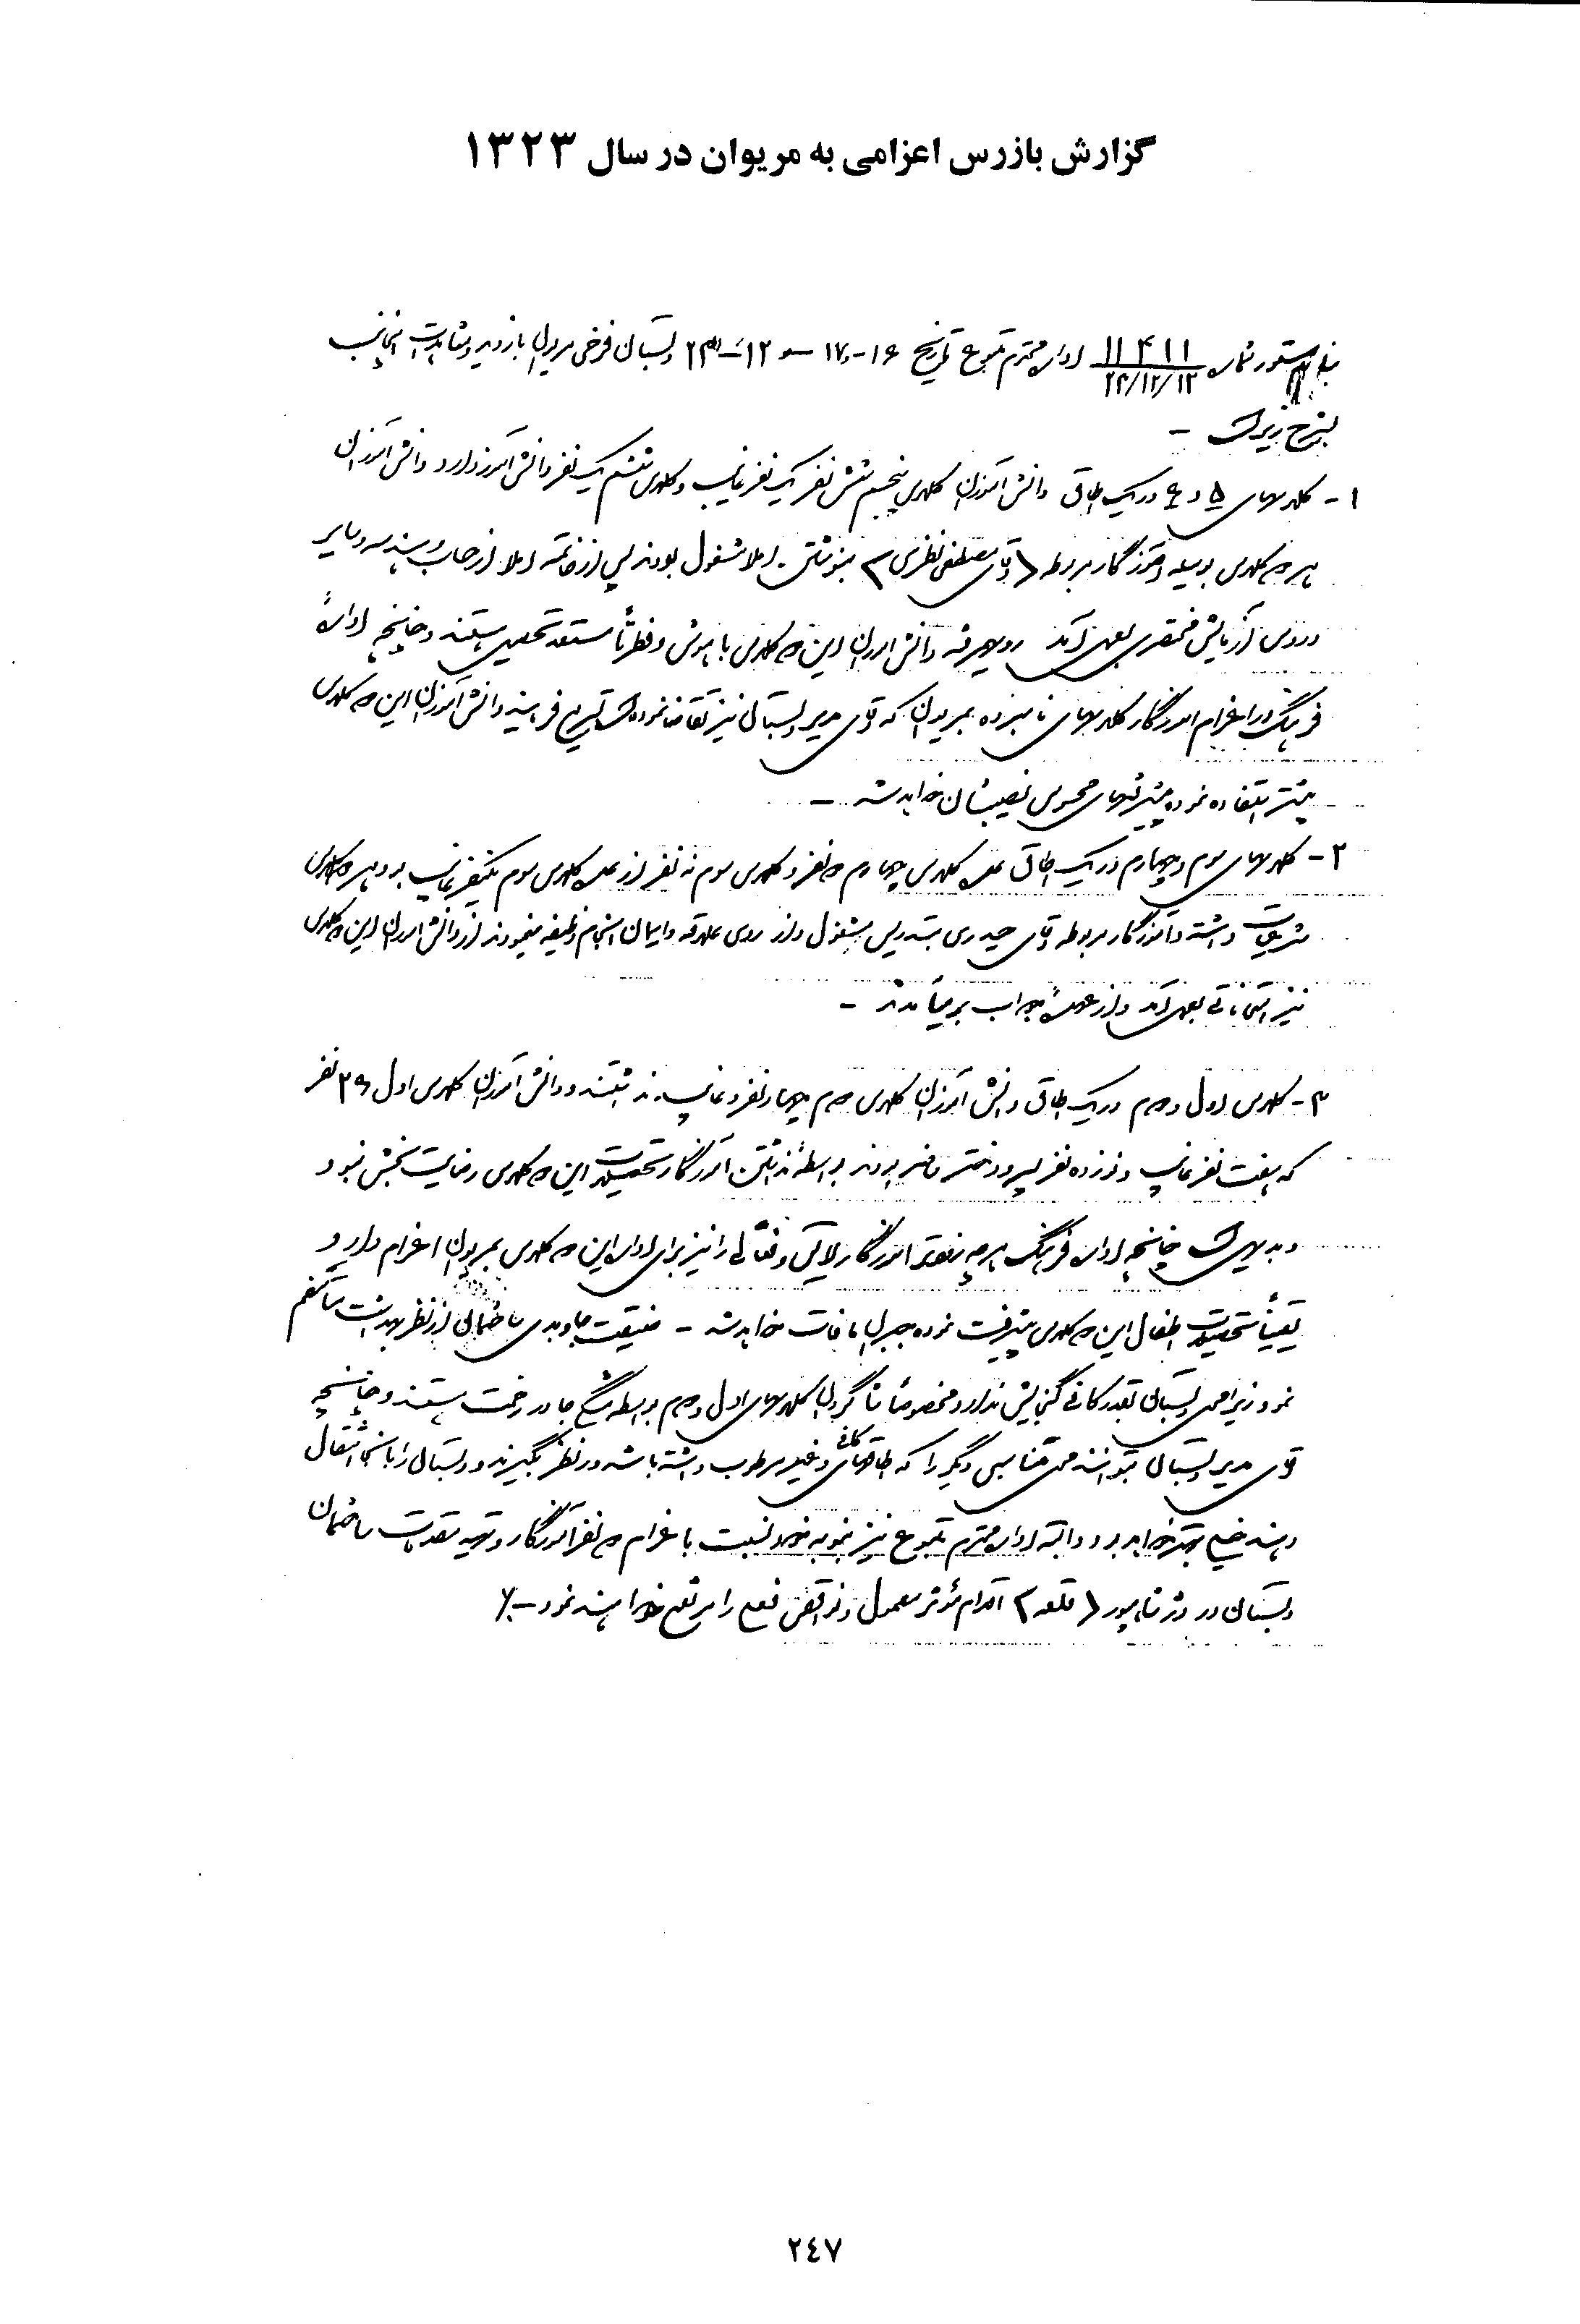 گزارش بازرس اعزامی به مریوان در سال ۱۳۲۳
بنا بدستور شماره ۱۱۴۱۱ ۲۳/۱۲/۱۲ اداره محترم متبوع تاریخ ۱۶-۱۷ ۱۲ دبستان فرخی مریوان بازدید و مشاهدات اینجانب
بشرح زیر است -
۱- کلاسهای ۵ و ۶ در یک اطاق دانش آموزان کلاس پنجم شش نفر یک نفر غایب و کلاس ششم یک نفر دانش آموز دارد دانش آموزان
هر دو کلاس بوسیله آموزگار مربوطه (آقای مصطفی نظری) بنوشتن املا مشغول بودند پس از خاتمه املا از حساب و هندسه و سایر
دروس آزمایش مختصری بعمل آمد رویهمرفته دانش آموزان این دو کلاس با هوش و فطرتاً مستعد تحصیل هستند و چنانچه اداره
فرهنگ در اعزام آموزگار کلاسهای نامبرده بمریوان که آقای مدیر دبستان نیز تقاضا نموده است تسریع فرمایند دانش آموزان این دو کلاس
بیشتر استفاده نموده پیشرفتهای محسوس نصیبشان خواهد شد -
۲- کلاسهای سوم و چهارم در یک اطاق عده کلاس چهارم دو نفر و کلاس سوم نه نفر از عده کلاس سوم یکنفر غایب بود بهر دو کلاس
داشته و آموزگار مربوطه آقای حیدری بتدریس مشغول و از روی علاقه و ایمان انجام وظیفه مینمودند از دانش آموزان این دو کلاس
نیز امتحاناتی بعمل آمد و از عهده جواب بر میآمدند -
۳- کلاس اول و دوم در یک اطاق دانش آموزان کلاس دوم چهار نفر و غایب نداشتند و دانش آموزان کلاس اول ۲۶ نفر
که هفت نفر غایب و نوزده نفر پسر و دختر حاضر بودند بواسطه نداشتن آموزگار تحصیلات این دو کلاس رضایت بخش نبود
و بدیهی است چنانچه اداره فرهنگ هر چه زودتر آموزگار لایق و فعالی را نیز برای اداره این دو کلاس بمریوان اعزام دارد
یقیناً تحصیلات اطفال این دو کلاس پیشرفت نموده جبران مافات خواهد شد - ساختمان از نظر بهداشت
نبود زیرا محل دبستان بقدر کافی گنجایش ندارد و مخصوصاً شاگردان کلاسهای اول و دوم بواسطه تنگی جا در زحمت هستند و چنانچه
آقای مدیر دبستان بتوانند محل مناسبی دیگر را که اطاقهای کافی و غیر مرطوب داشته باشد در نظر بگیرند و دبستان را بآنجا انتقال
دهند خیلی بهتر خواهد بود و البته اداره محترم متبوع نیز بنوبه خود نسبت باعزام دو نفر آموزگار و تهیه مقدمات ساختمان
دبستان در دژ شاهپور (قلعه) اقدام مؤثر معمول و نواقص فوق را مرتفع خواهند نمود -
۲٤۷